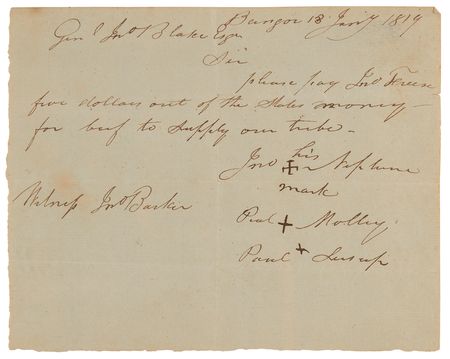 Bangor 18 Jany 1819
Genl Jno Blake Esqr
Sir
please pay Jno Freese
five dollars out of the States money
for beef to supply our tribe
his
Jno + Neptune
mark
Witness Jno Barker
Peal + Molley
Paul + Susup